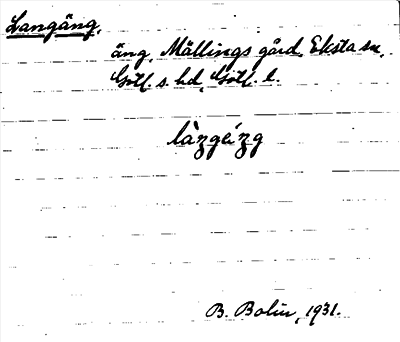 Langäng,
äng, Mällings gård, Eksta sn,
Gotl. s. hd, Gotl. l.
B. Bolin, 1931.